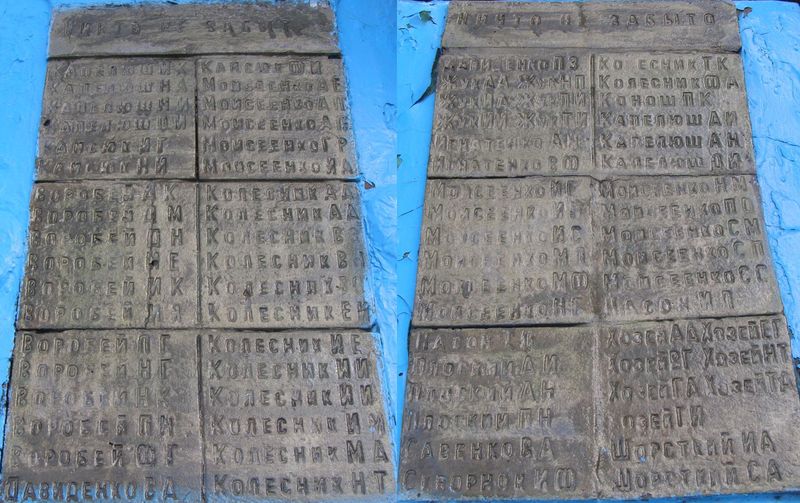 НИКТО НЕ ЗАБЫТ
КАПЕЛЮШ КАЙСЮК Ф И
КАПЕЛЮШ Н А МОИСЕЕНКО А Е
КАПЕЛЮШ Н И МОИСЕЕНКО А П
КАПЕЛЮШ МОИСЕЕНКО А Н
КАЙСЮК И Г МОИСЕЕНКО Г Р
КАЙСЮК Н И МОИСЕЕНКО И А
ВОРОБЕЙ А К КОЛЕСНИК А А
ВОРОБЕЙ А М КОЛЕСНИК А А
ВОРОБЕЙ Д Н КОЛЕСНИК В
ВОРОБЕЙ И Е КОЛЕСНИК В
ВОРОБЕЙ И К КОЛЕСНИК
ВОРОБЕЙ И Я КОЛЕСНИК Е И
ВОРОБЕЙ П Г КОЛЕСНИК И Е
ВОРОБЕЙ Н Г КОЛЕСНИК И И
ВОРОБЕЙ Н К КОЛЕСНИК И И
ВОРОБЕЙ П Н КОЛЕСНИК И
ВОРОБЕЙ Ф Г КОЛЕСНИК М А
ДАВИДЕНКО В А КОЛЕСНИК Н Т
НИЧТО НЕ ЗАБЫТО
П З КОЛЕСНИК Т К
ЖУК А А ЖУК Н П КОЛЕСНИК Ф А
ЖУК И А ЖУК П И КОНОШ П К
ЖУК И И ЖУК Т И КАПЕЛЮШ А И
ИГНАТЕНКО А Н КАПЕЛЮШ А Н
ИГНАТЕНКО В Ф КАПЕЛЮШ Д И
МОИСЕЕНКО И Е МОИСЕЕНКО Н М
МОИСЕЕНКО И МОИСЕЕНКО П О
МОИСЕЕНКО И С МОИСЕЕНКО С М
МОИСЕЕНКО М А МОИСЕЕНКО С П
МОИСЕЕНКО М Ф МОИСЕЕНКО С С
МОИСЕЕНКО Н Г НАСОН И П
НАСОН ХОЗЕЙ А А ХОЗЕЙ Е Г
ПЛОСКИЙ А И ХОЗЕЙ В Г ХОЗЕЙ Н Т
ПЛОСКИЙ А Н ХОЗЕЙ Г А ХОЗЕЙ Т А
ПЛОСКИЙ П Н ХОЗЕЙ Г И
САВЕНКО В А ШОРСТКИЙ И А
СКВОРНЮК И Ф ШОРСТКИЙ С А